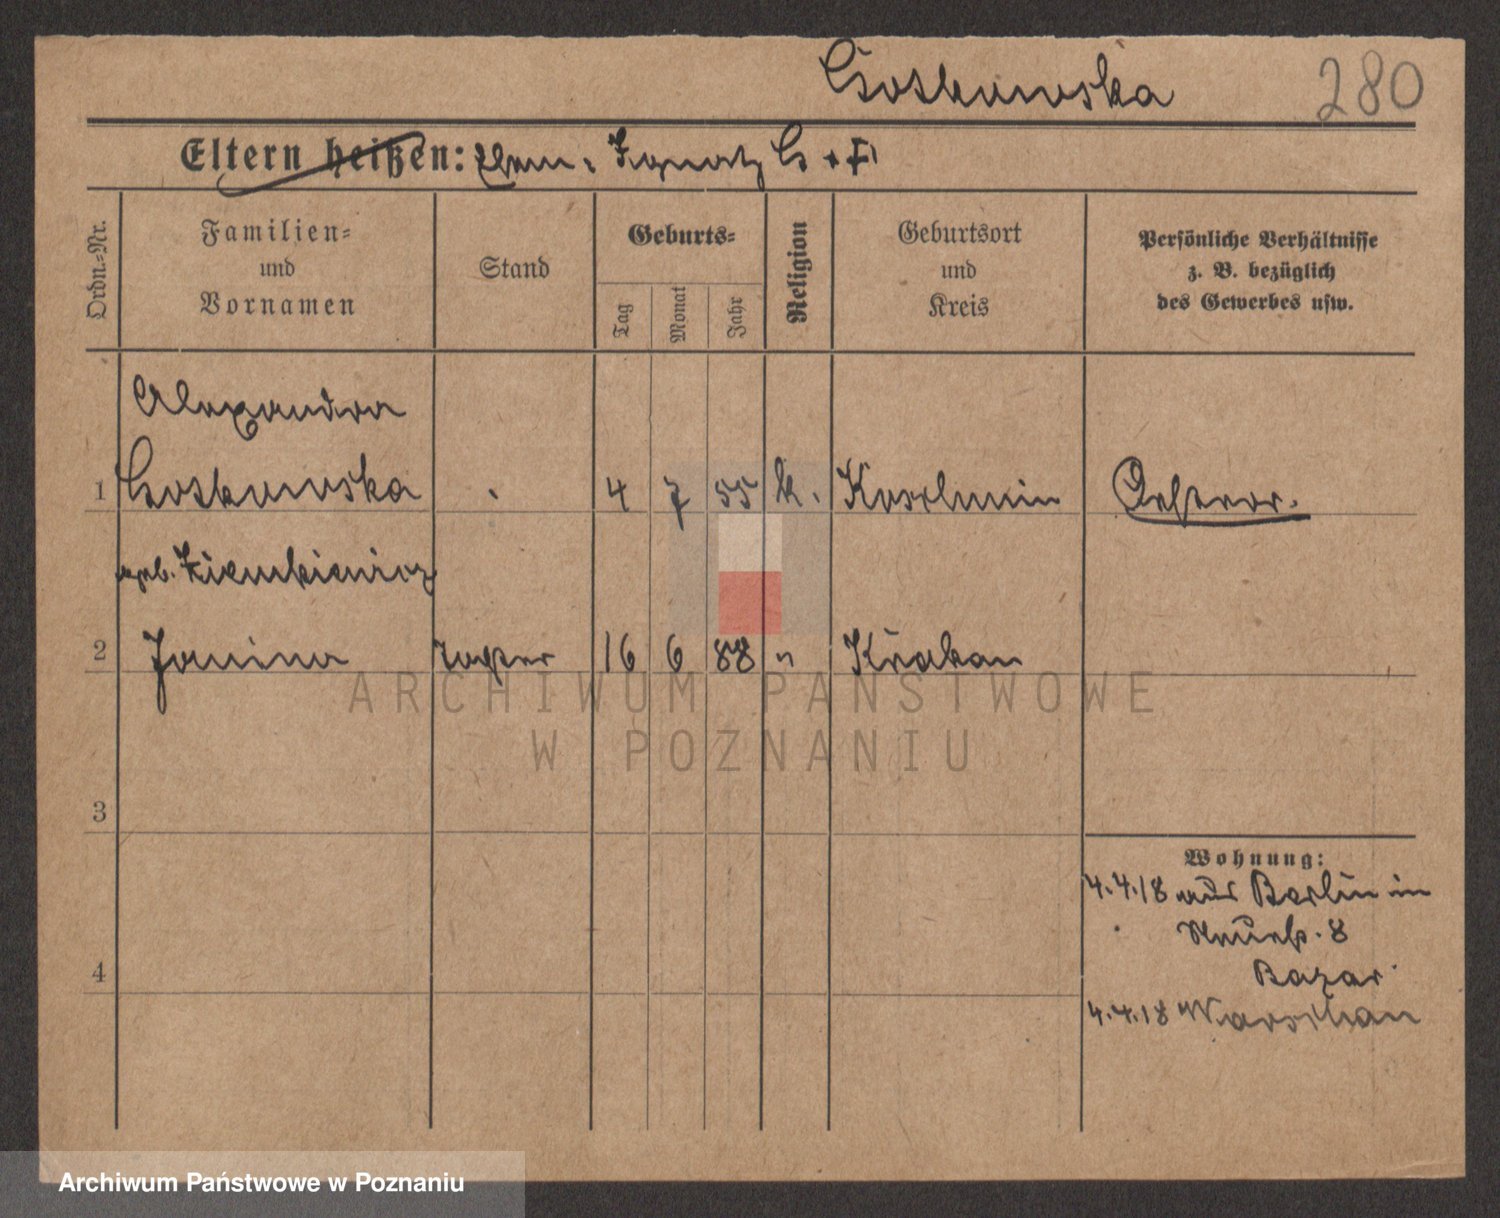 Czoskowska 280
Eltern heißen: Ignatz
Ordn.-Nr.
Familien-
und
Vornamen
Stand
Geburts-
Tag
Monat
Jahr
Religion
Geburtsort
und
Kreis
Persönliche Verhältnisse
z. B. bezüglich
des Gewerbes usw.
Alexandra
1 4 7 55 k. Koschmin Oesterr.
geb. Ziembiewicz
2 Janina Tochter 16 6 88 " Krakau
ARCHIWUM PAŃSTWOWE
W POZNANIU
3
Wohnung:
4.4.18 aus Berlin in
Neuestr. 8
Bazar
4
4.4.18 Warschau
Archiwum Państwowe w Poznaniu